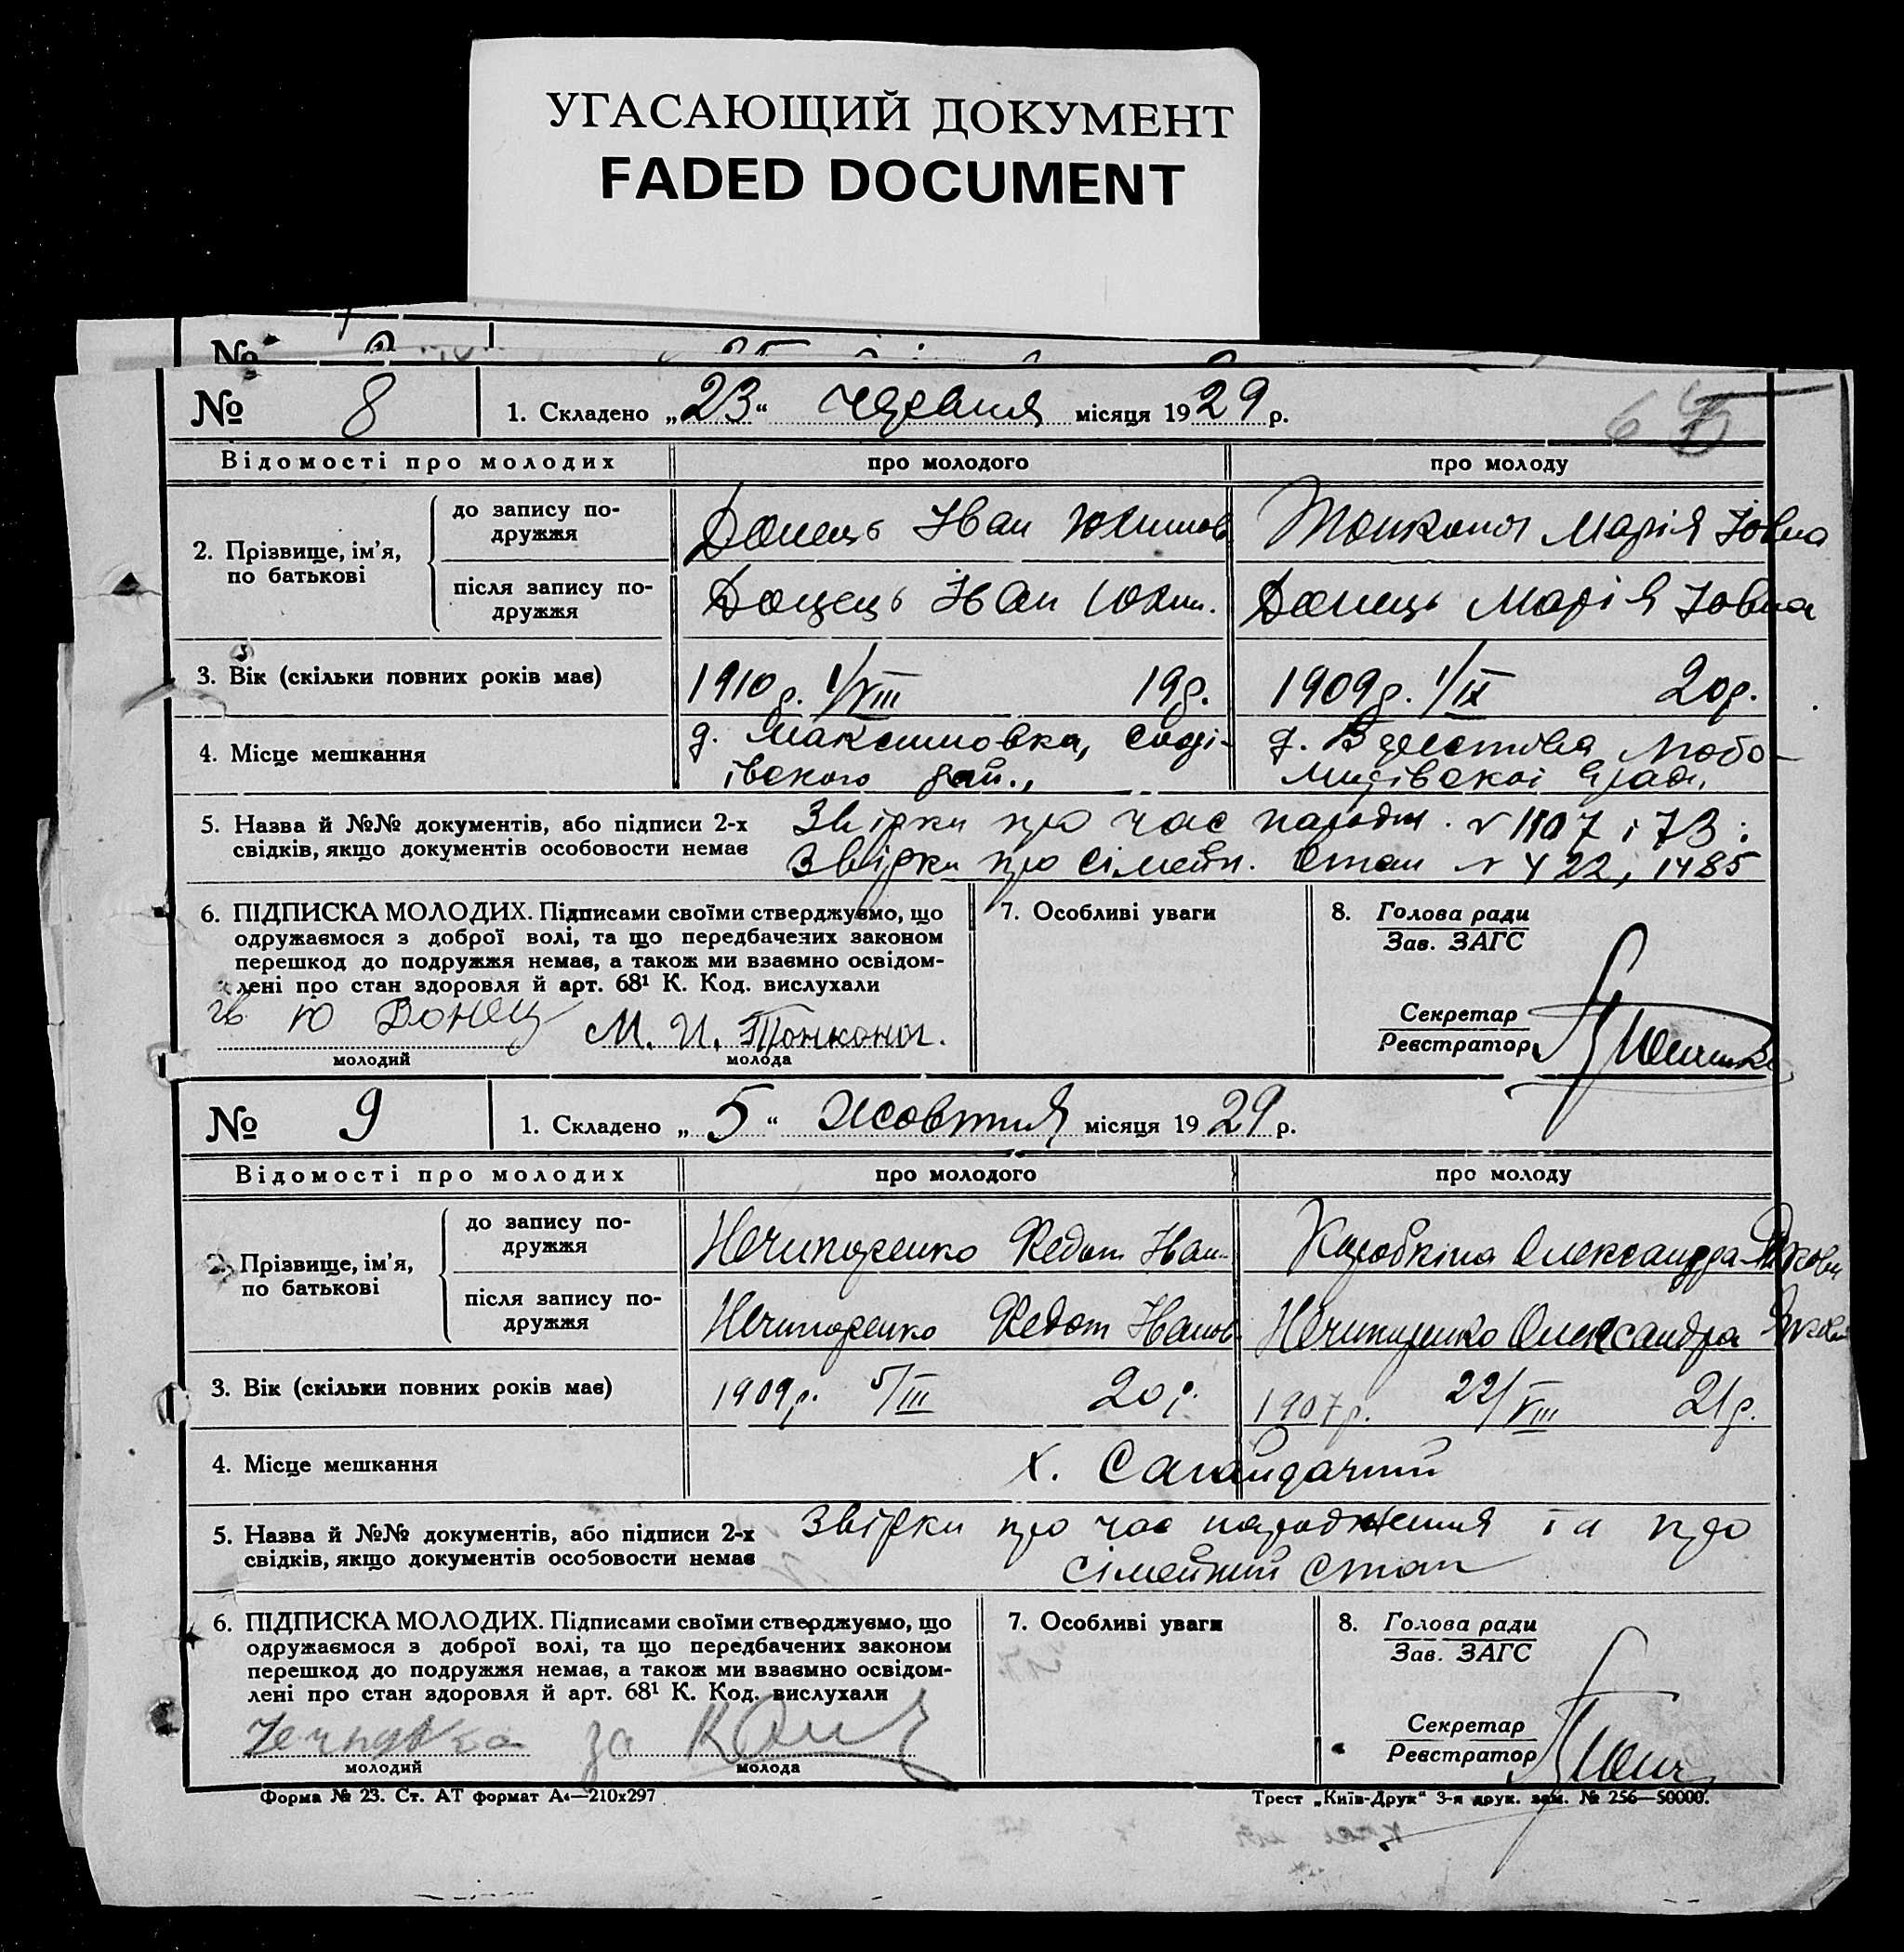 УГАСАЮЩИЙ ДОКУМЕНТ
FADED DOCUMENT
№
№ 8 1. Складено „23“ червня місяця 1929 р.
Відомості про молодих про молодого про молоду
2. Прізвище, ім’я, по батькові
до запису по-
дружжя
Донець Іван Юхимов Тонконог Марія Іовна
після запису по-
дружжя
Донець Іван Юхим. Донець Марія Іовна
3. Вік (скільки повних років має) 1910 р. 1/VIII 19 р. 1909 р. 1/IX 20 р.
4. Місце мешкання
д. Максимовка,
івского рай.,
5. Назва й №№ документів, або підписи 2-х
свідків, якщо документів особовости немає
Звірки про час народж. № 1107 і 73;
Звірки про сімейн. стан № 422, 1485
6. ПІДПИСКА МОЛОДИХ. Підписами своїми стверджуємо, що
одружаємося з доброї волі, та що передбачених законом
перешкод до подружжя немає, а також ми взаємно освідом-
лені про стан здоров‘я й арт. 68¹ К. Код. вислухали
Ю Донец М. И. Тонконог.
молодий молода
7. Особливі уваги
8. Голова ради
Зав. ЗАГС
Секретар
Реєстратор
№ 9 1. Складено „5“ жовтня місяця 1929 р.
Відомості про молодих про молодого про молоду
2. Прізвище, ім’я,
по батькові
до запису по-
дружжя
Нечипоренко Федот Іван. Коробкіна Олександра Яковн
після запису по-
дружжя
Нечипоренко Федот Іванов. Нечипоренко Олександра
3. Вік (скільки повних років має) 1909 р. 5/III 20 р. 1907 р. 22/VIII 21 р.
4. Місце мешкання х. Сагайдачний
5. Назва й №№ документів, або підписи 2-х
свідків, якщо документів особовости немає
Звірки про час народження та про
сімейний стан
6. ПІДПИСКА МОЛОДИХ. Підписами своїми стверджуємо, що
одружаємося з доброї волі, та що передбачених законом
перешкод до подружжя немає, а також ми взаємно освідом-
лені про стан здоровля й арт. 68¹ К. Код. вислухали
за
молодий молода
7. Особливі уваги
8. Голова ради
Зав. ЗАГС
Секретар
Реєстратор
Форма № 23. Ст. АТ формат А₄—210х297 Трест „Київ-Друк“ 3-я друк. зам. № 256—50000.